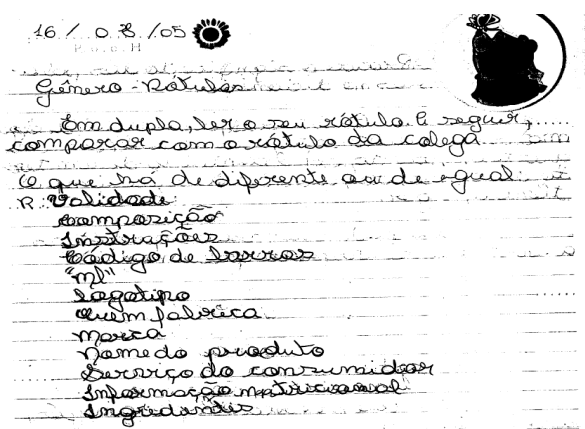 16 / 08 / 05
P o o H
Gênero - Rótulos
Em dupla, ler o seu rótulo. E seguir,
comparar com o rótulo da colega
O que há de diferente ou de igual
R. Validade
Composição
Instruções
Código de barras
"ml"
Logotipo
Quem fabrica
Marca
Nome do produto
Serviço do consumidor
Informação nutricional
Ingredientes